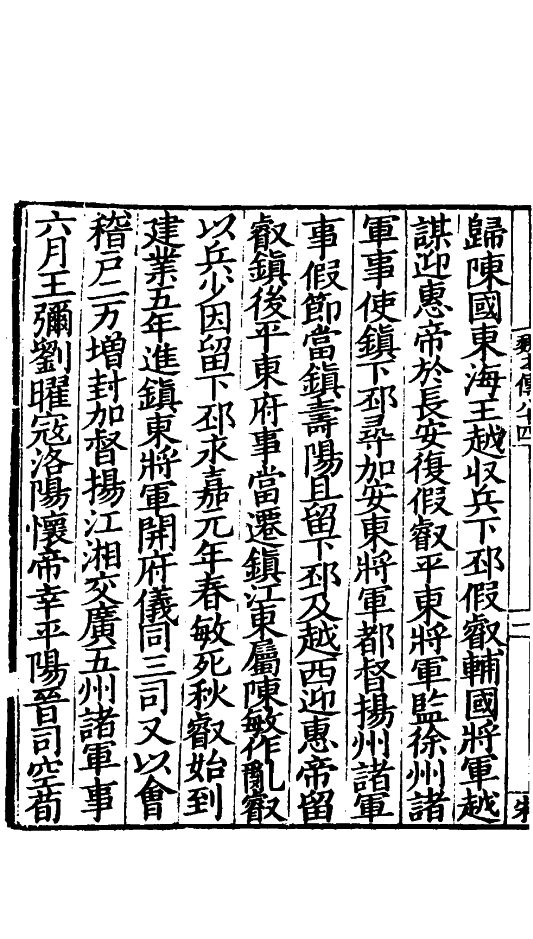 歸陳國東海王越収兵下邳假叡輔國將軍越
謀迎惠帝於長安復假叡平東將軍監徐州諸
軍事使鎮下邳尋加安東將軍都督揚州諸軍
事假節當鎮壽陽且留下邳及越西迎惠帝留
叡鎮後平東府事當遷鎮江東屬陳敏作亂叡
以兵少因留下邳永嘉元年春敏死秋叡始到
建業五年進鎮東將軍開府儀同三司又以會
稽戸二万增封加督揚江湘交廣五州諸軍事
六月王彌劉曜寇洛陽懷帝幸平陽晉司空荀